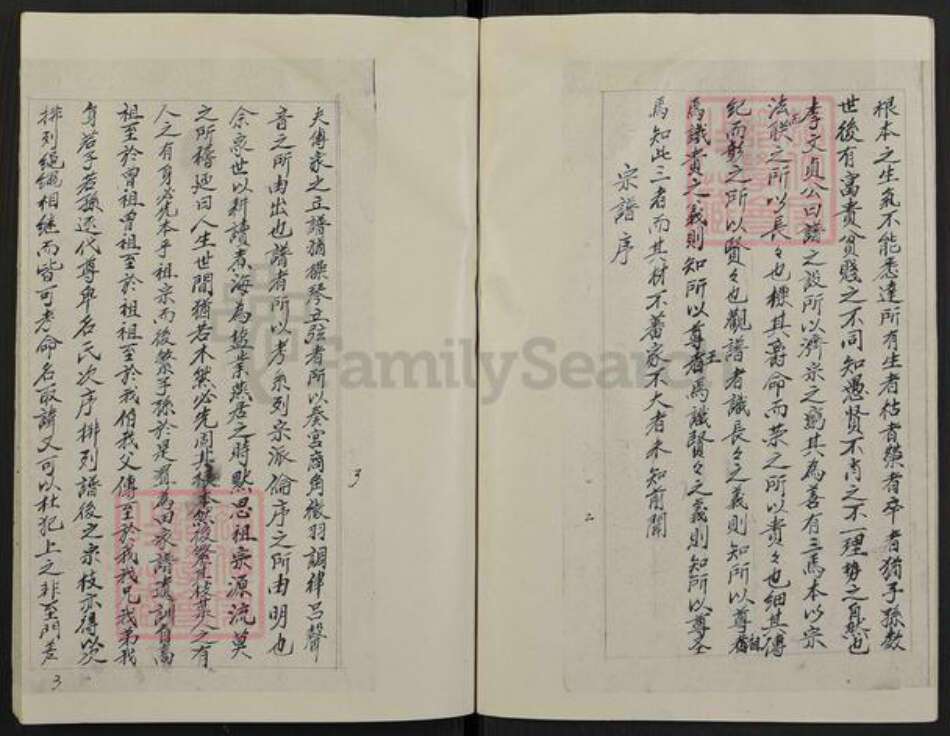 根本之生氣不能悉達所有生者枯者榮者卒者猶子孫数
世後有富貴貧賤之不同知愚賢不肖之不一理勢之自然也
李文貞公曰譜之設所以濟宗之窮其為善有三焉本以宗
法聯之所以長々也標其爵命而榮之所以貴々也細其傳
紀而彰之所以賢々也觀譜者識長々之義則知所以尊祖
焉識貴々之義則知所以尊王焉識賢々之義則知所以尊圣
焉知此三者而其材不蕃家不大者未知前聞
宗譜序
二
夫傳家之立譜猶操琴立弦者所以奏宮商角徵羽調律呂聲
音之所由出也譜者所以考系列宗派倫序之所由明也
余家世以耕讀煮海為塩業燕居之時默思祖宗源流莫
之所稽延曰人生世間猶若木然必先固其根本然後繁其枝葉人之有
人之有身必先本乎祖宗而後繁子孫於是爰為田家譜遺訓自高
祖至於曾祖曾祖至於祖祖至於我伯我父傳至於我我兄我弟我
身若子若孫迭代尊卑名氏次序排列譜後之宗枝亦得以次
排列繩繩相継而皆可考命名取諱又可以杜犯上之非至門差
3
3
FamilySearch